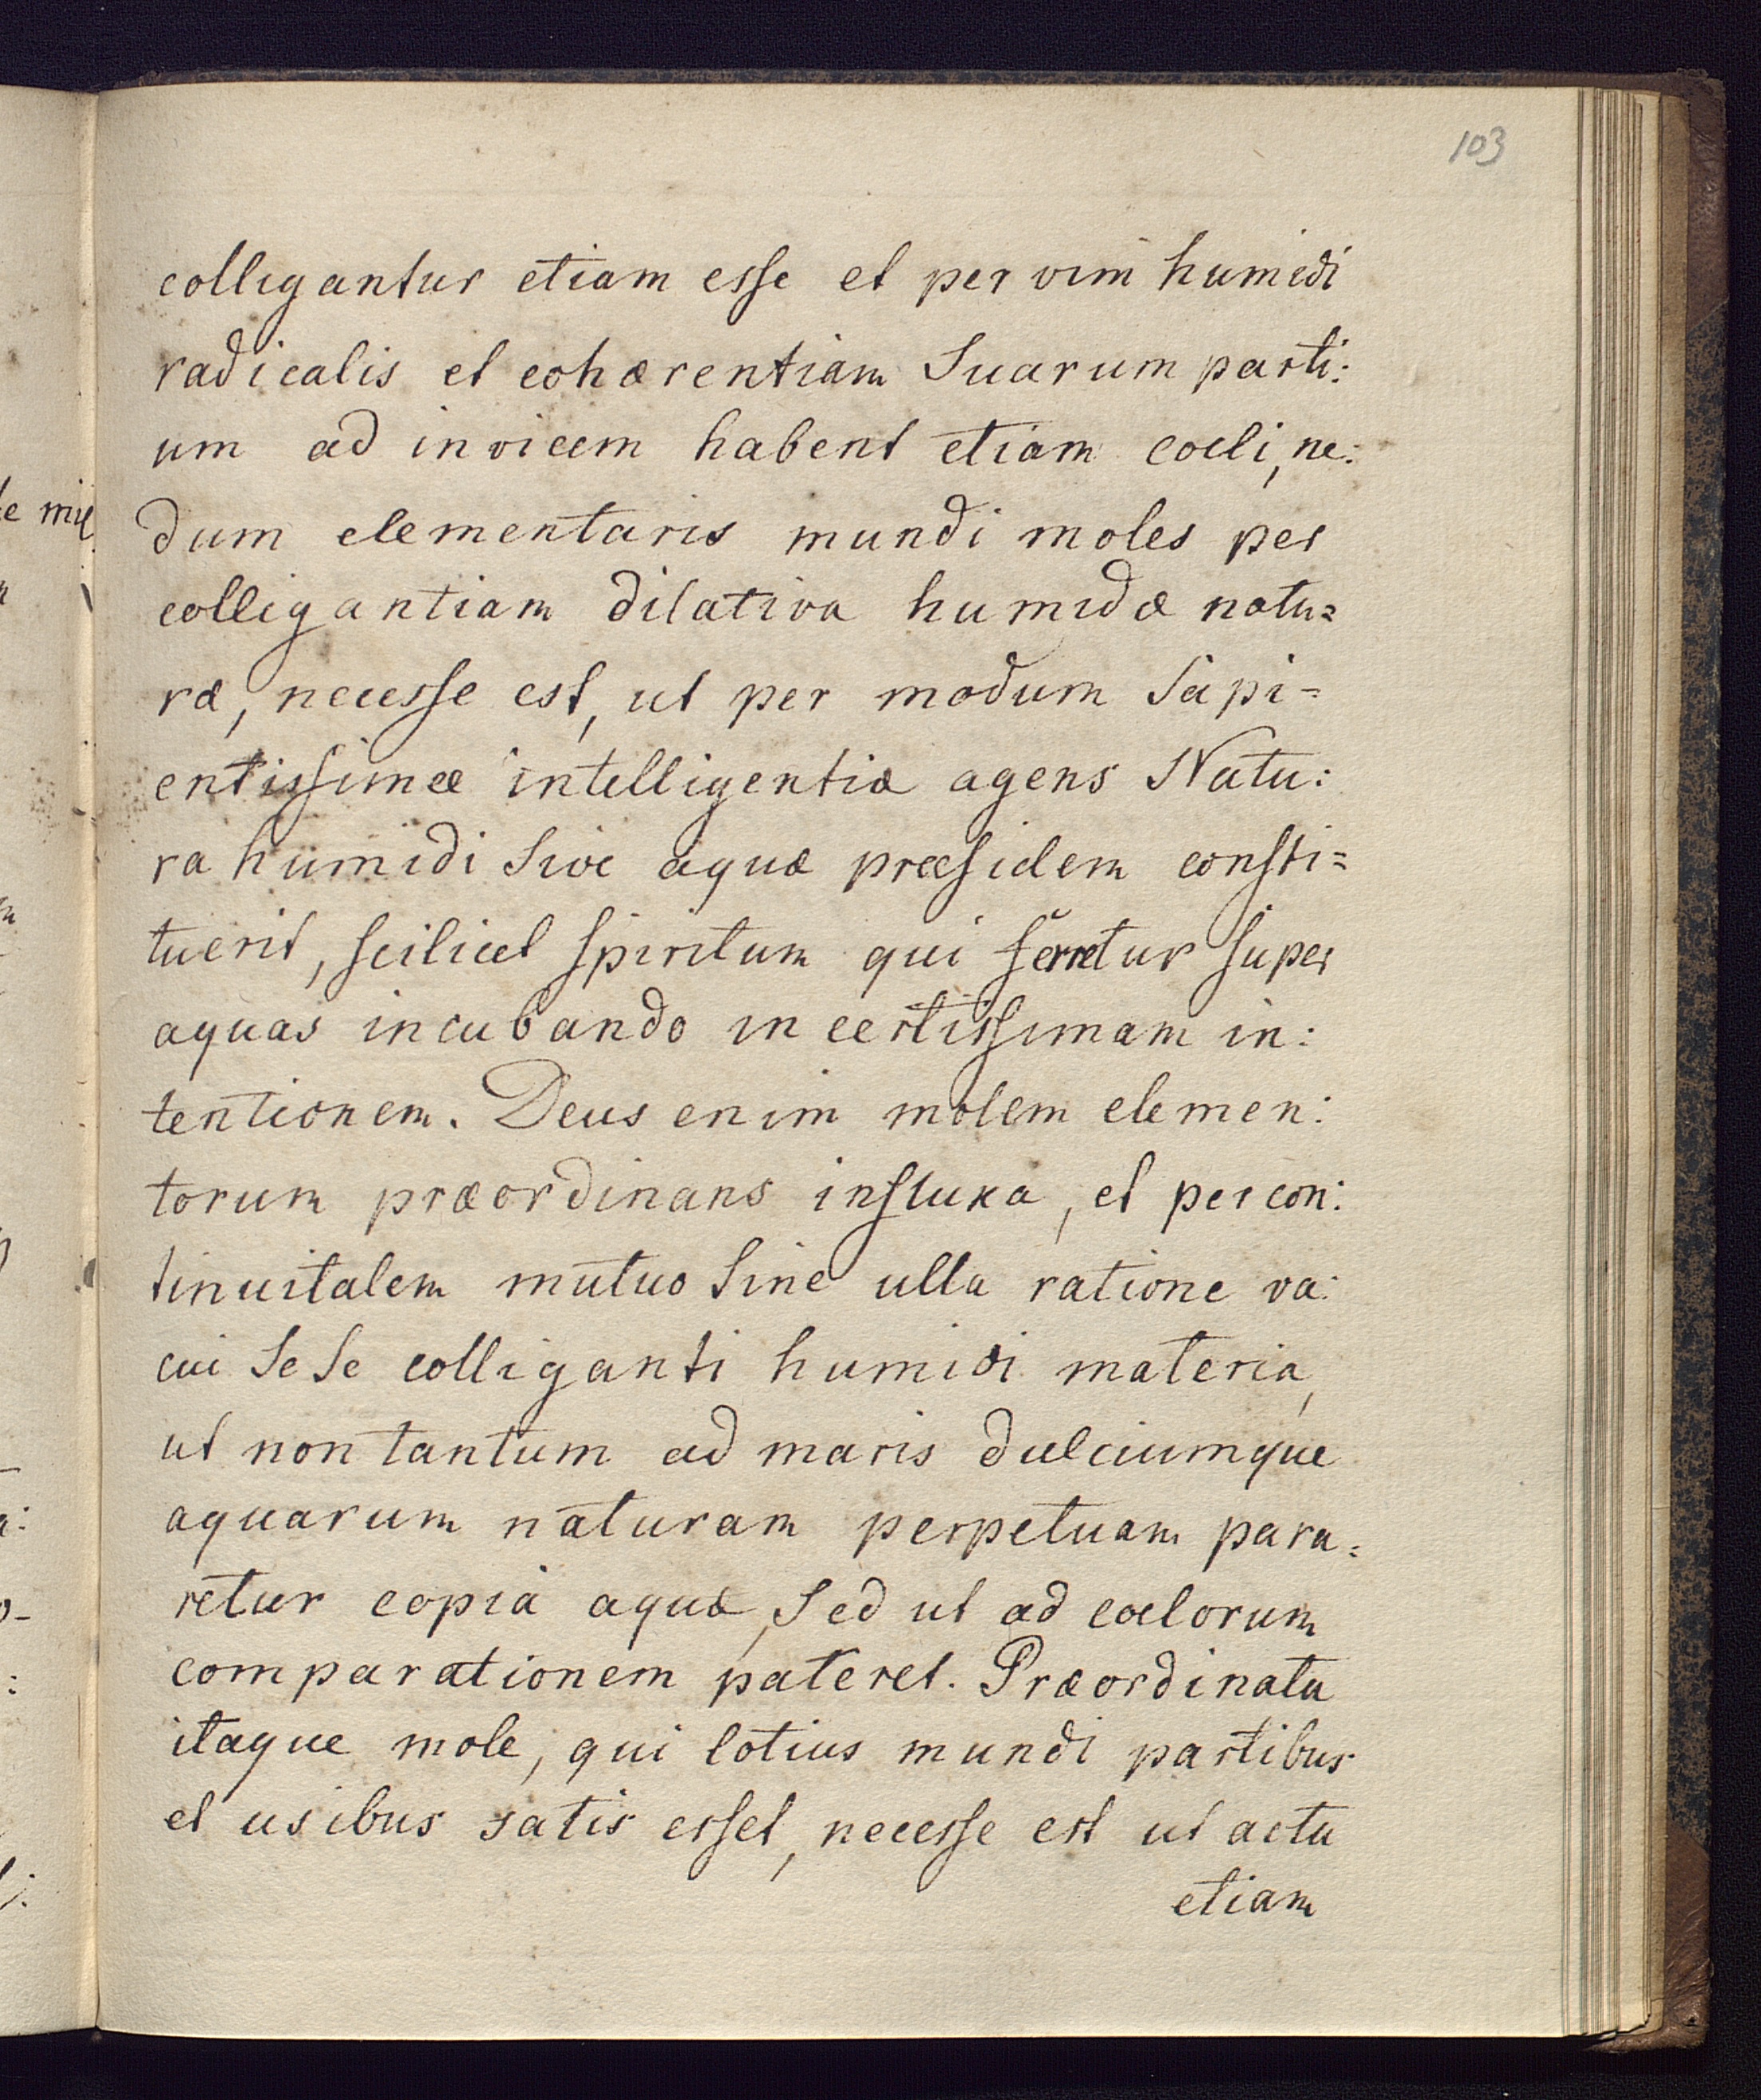 103
colligantur etiam esse et per vim humidi
radicalis et cohærentiam Suarum parti:
um ad invicem habent etiam coeli, ne:
dum elementaris mundi moles per
colligantiam dilativa humidæ natu=
ræ, necesse est, ut per modum Sapi=
entissimæ intelligentiæ agens Natu:
ra humidi Sive aquæ præsidem consti=
tuerit, scilicet spiritum qui ferretur super
aquas incubando in certissimam in:
tentionem. Deus enim molem elemen:
torum præordinans influxa, et per con:
tinuitatem mutuo Sine ulla ratione va:
cui Se Se colliganti humidi materia,
ut non tantum ad maris dulciumque
aquarum naturam perpetuam para=
retur copia aquæ, Sed ut ad coelorum
comparationem pateret. Præordinata
itaque mole, qui totius mundi partibus
et usibus satis esset, necesse est ut actu
etiam